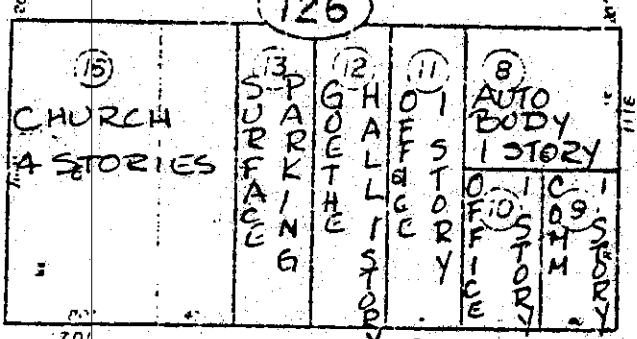 126
15
CHURCH
4 STORIES
13
SURFACE
PARKING
12
GOETHE
HALL 1 STORY
11
OFFICE
1 STORY
8
AUTO
BODY
1 STORY
10
OFFICE
1 STORY
9
COMM
1 STORY